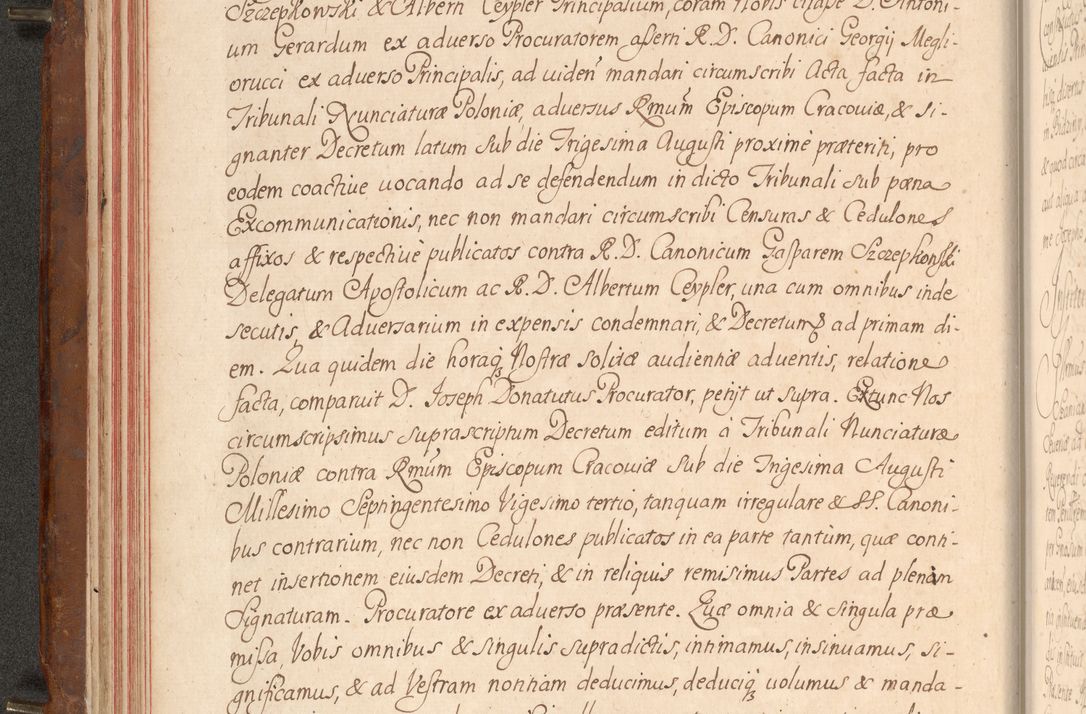 Szczepkowski & Albern Ceypler Principalium, coram Nobis citasse D. Antoni-
um Gerardum ex adverso Procuratorem assern R. D. Canonici Georgij Megli-
orucci ex adverso Principalis, ad uiden̄ mandari circumscribi Acta facta in
Tribunali Nunciaturæ Poloniæ, adversus Rm̄um Episcopum Cracoviæ, & si-
gnanter Decretum latum sub die Trigesima Augusti proximè præteriti, pro
eodem coactiue uocando ad se defendendum in dicto Tribunali sub pœna
Excommunicationis, nec non mandari circumscribi Censuras & Cedulones
affixos & respectiuè publicatos contra R. D. Canonicum Gasparem Szczepkonski
Delegatum Apostolicum ac R. D. Albertum Ceypler, una cum omnibus inde
secutis, & Adversarium in expensis condemnari, & Decretum ad primam di-
em. Qua quidem die horaq₃ Nostræ solitæ audientiæ adventis, relatione
facta, comparuit D. Joseph Donatutus Procurator, petijt ut supra. Extunc Nos
circumscripsimus suprascriptum Decretum editum à Tribunali Nunciaturæ
Poloniæ contra Rm̄um Episcopum Cracoviæ sub die Trigesima Augusti
Millesimo Septingentesimo Vigesimo tertio, tanquam irregulare & SS. Canoni-
bus contrarium, nec non Cedulones publicatos in ea parte tantùm, quæ conti-
net insertionem eiusdem Decreti, & in reliquis remisimus Partes ad plenam
Signaturam. Procuratore ex adverso præsente. Quæ omnia & singula præ
missa Vobis omnibus & singulis supradictis, intimamus, insinuamus, si-
gnificamus, & ad Vestram notitiam deducimus, deduciq₃ uolumus & manda-